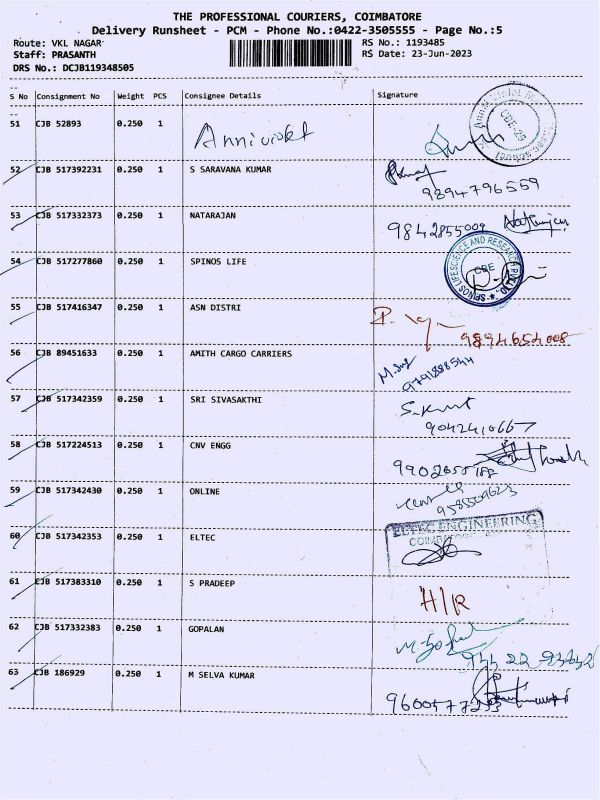 THE PROFESSIONAL COURIERS, COIMBATORE
Delivery Runsheet - PCM - Phone No.:0422-3505555 - Page No.:5
Route: VKL NAGAR RS No.: 1193485
Staff: PRASANTH RS Date: 23-Jun-2023
DRS No.: DCJB119348505
S No Consignment No Weight PCS Consignee Details Signature
51 CJB 52893 0.250 1
52 CJB 517392231 0.250 1 S SARAVANA KUMAR
9894796559
53 CJB 517332373 0.250 1 NATARAJAN
9842855009
54 CJB 517277860 0.250 1 SPINOS LIFE
SPINOS LIFESCIENCE AND RESEARCH PVT LTD.
CBE
55 CJB 517416347 0.250 1 ASN DISTRI
9894654008
56 CJB 89451633 0.250 1 AMITH CARGO CARRIERS
57 CJB 517342359 0.250 1 SRI SIVASAKTHI
9042410667
58 CJB 517224513 0.250 1 CNV ENGG
59 CJB 517342430 0.250 1 ONLINE
60 CJB 517342353 0.250 1 ELTEC
ELTEC ENGINEERING
61 CJB 517383310 0.250 1 S PRADEEP
H/R
62 CJB 517332383 0.250 1 GOPALAN
63 CJB 186929 0.250 1 M SELVA KUMAR